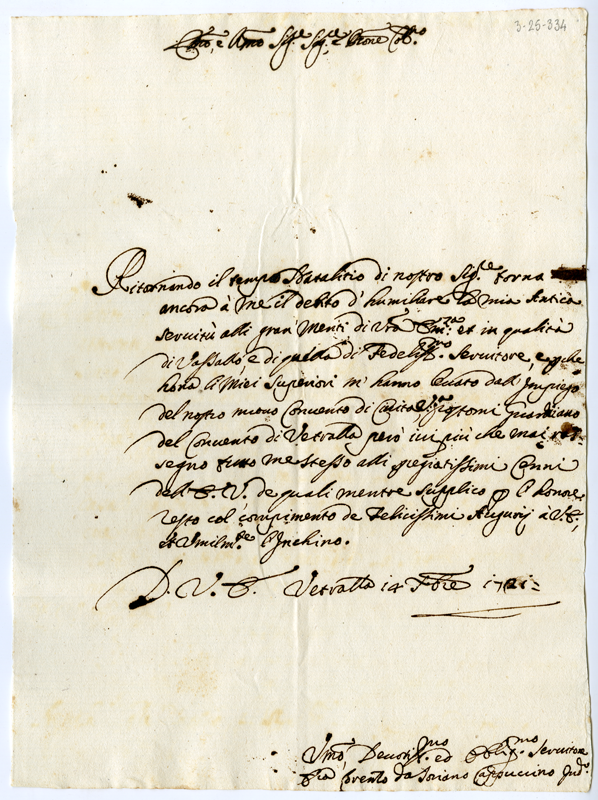 3-25-334
Em̃o, e Rm̃o Sig.re Sig.re e Pr̃one Col.mo
Ritornando il tempo Natalitio di nostro Sig.re torna
ancora à me il debito d'humiliare la mia Antica
servitù alli gran Meriti di Vr̃a Em̃.za et in qualità
di Vassallo, e di quella di Fedeliss.mo Servitore, e perche
hora li Miei Superiori m'hanno levato dall'Impiego
del nostro nuovo Convento di Guardiano
del Convento di Vetralla però qui più che mai ras-
segno tutto me stesso alli pregiatissimi Cenni
dell'E. V. de quali mentre supplico l'honore
resto col compimento de Felicissimi Augurij à V. E.
et Umilm.te l'Inchino.
D. V. E. Vetralla 14 Xbre 1721
Um̃o Devotiss.mo ed Oblig.mo Servitore
Fra da Soriano Cappuccino Ind.o